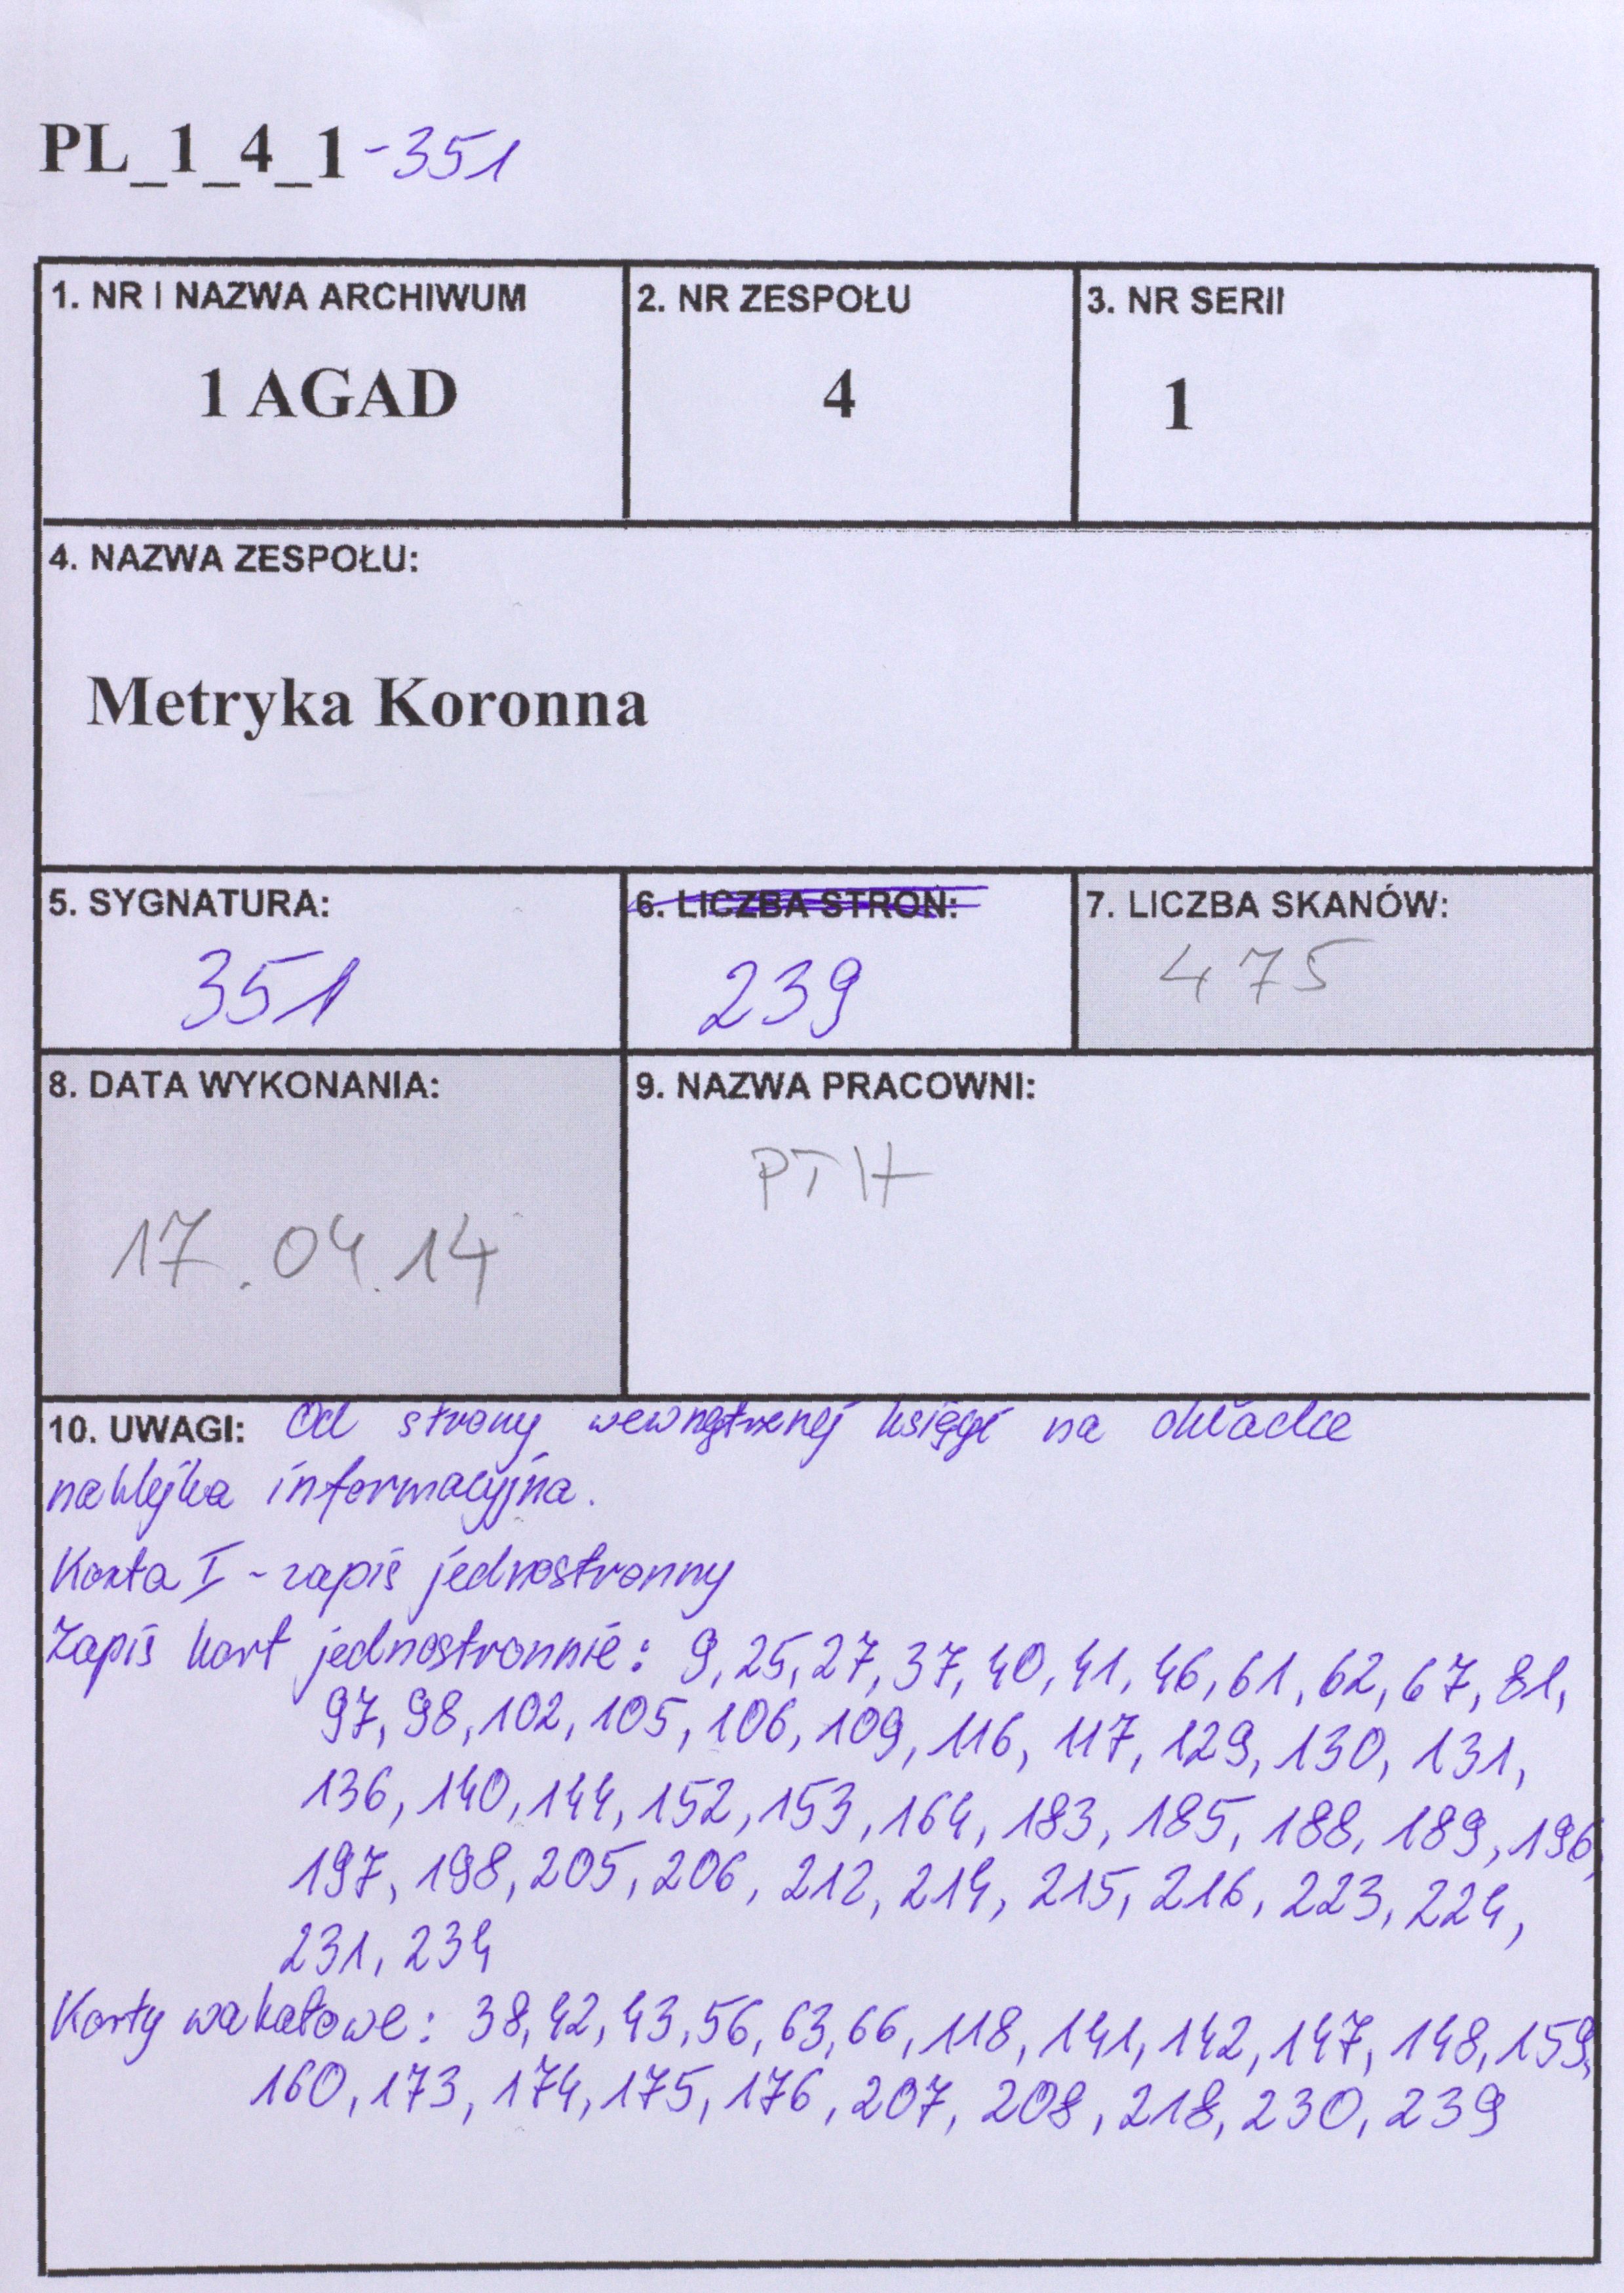 PL_1_4_1-351
1. NR I NAZWA ARCHIWUM
1 AGAD
2. NR ZESPOŁU
4
3. NR SERII
1
4. NAZWA ZESPOŁU:
Metryka Koronna
5. SYGNATURA:
351
6. LICZBA STRON:
239
7. LICZBA SKANÓW:
475
8. DATA WYKONANIA:
17.04.14
9. NAZWA PRACOWNI:
PTH
10. UWAGI: Od strony wewnętrznej księgi na okładce
naklejka informacyjna.
Karta I - zapis jednostronny
Zapis kart jednostronnie: 9, 25, 27, 37, 40, 41, 46, 61, 62, 67, 81,
97, 98, 102, 105, 106, 109, 116, 117, 129, 130, 131,
136, 140, 144, 152, 153, 164, 183, 185, 188, 189, 196,
197, 198, 205, 206, 212, 214, 215, 216, 223, 224,
231, 234
Karty wakatowe: 38, 42, 43, 56, 63, 66, 118, 141, 142, 147, 148, 159,
160, 173, 174, 175, 176, 207, 208, 218, 230, 239